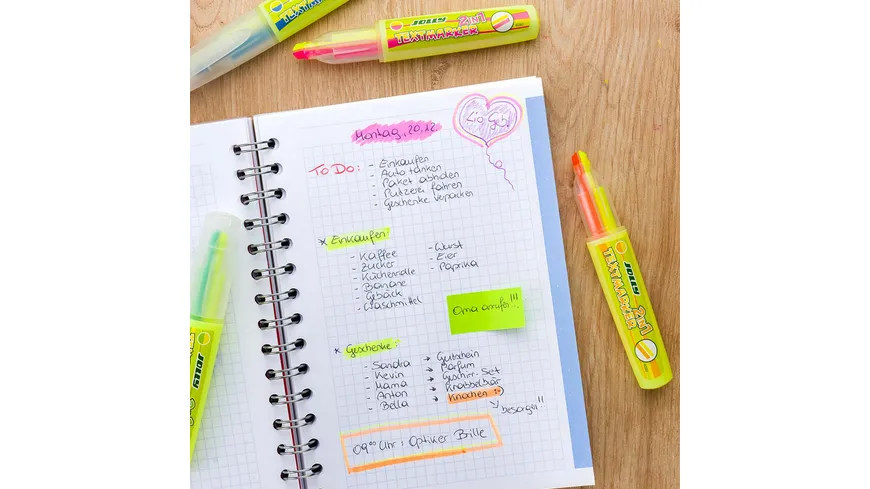 TEXTMARKER
JOLLY 2in1
TEXTMARKER
Montag, 20.12
TO DO:
- Einkaufen
- Auto tanken
- Paket abholen
- Putzerei fahren
- Geschenke verpacken
* Einkaufen:
- Kaffee
- Zucker
- Küchenrolle
- Banane
- Gebäck
- Waschmittel
- Wurst
- Eier
- Paprika
Oma anrufen!!!
* Geschenke:
- Sandra → Gutschein
- Kevin → Parfum
- Mama → Geschirr-Set
- Anton → Knabbelbär
- Bella → Knochen :)
besorgen!!
09⁰⁰ Uhr: Optiker Brille
JOLLY
TEXTMARKER 2in1
JOLLY